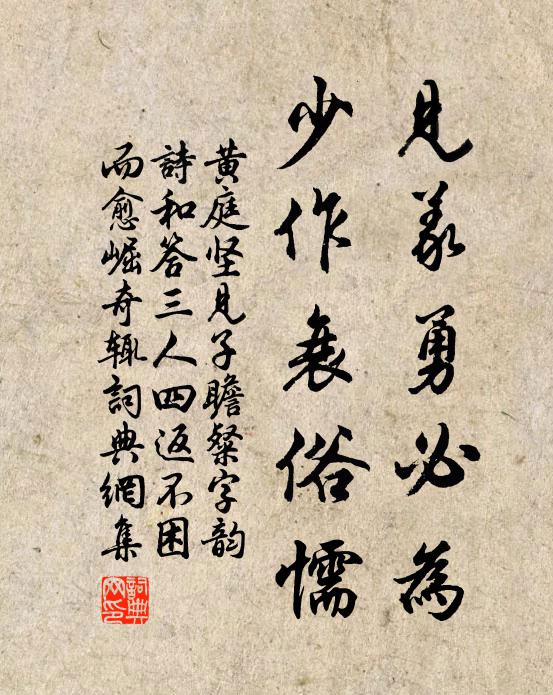 見義勇必為
少作衰俗懦
黄庭坚見子瞻粲字韵
詩和答三人四返不困
而愈崛奇辄詞典網集
詞典網印